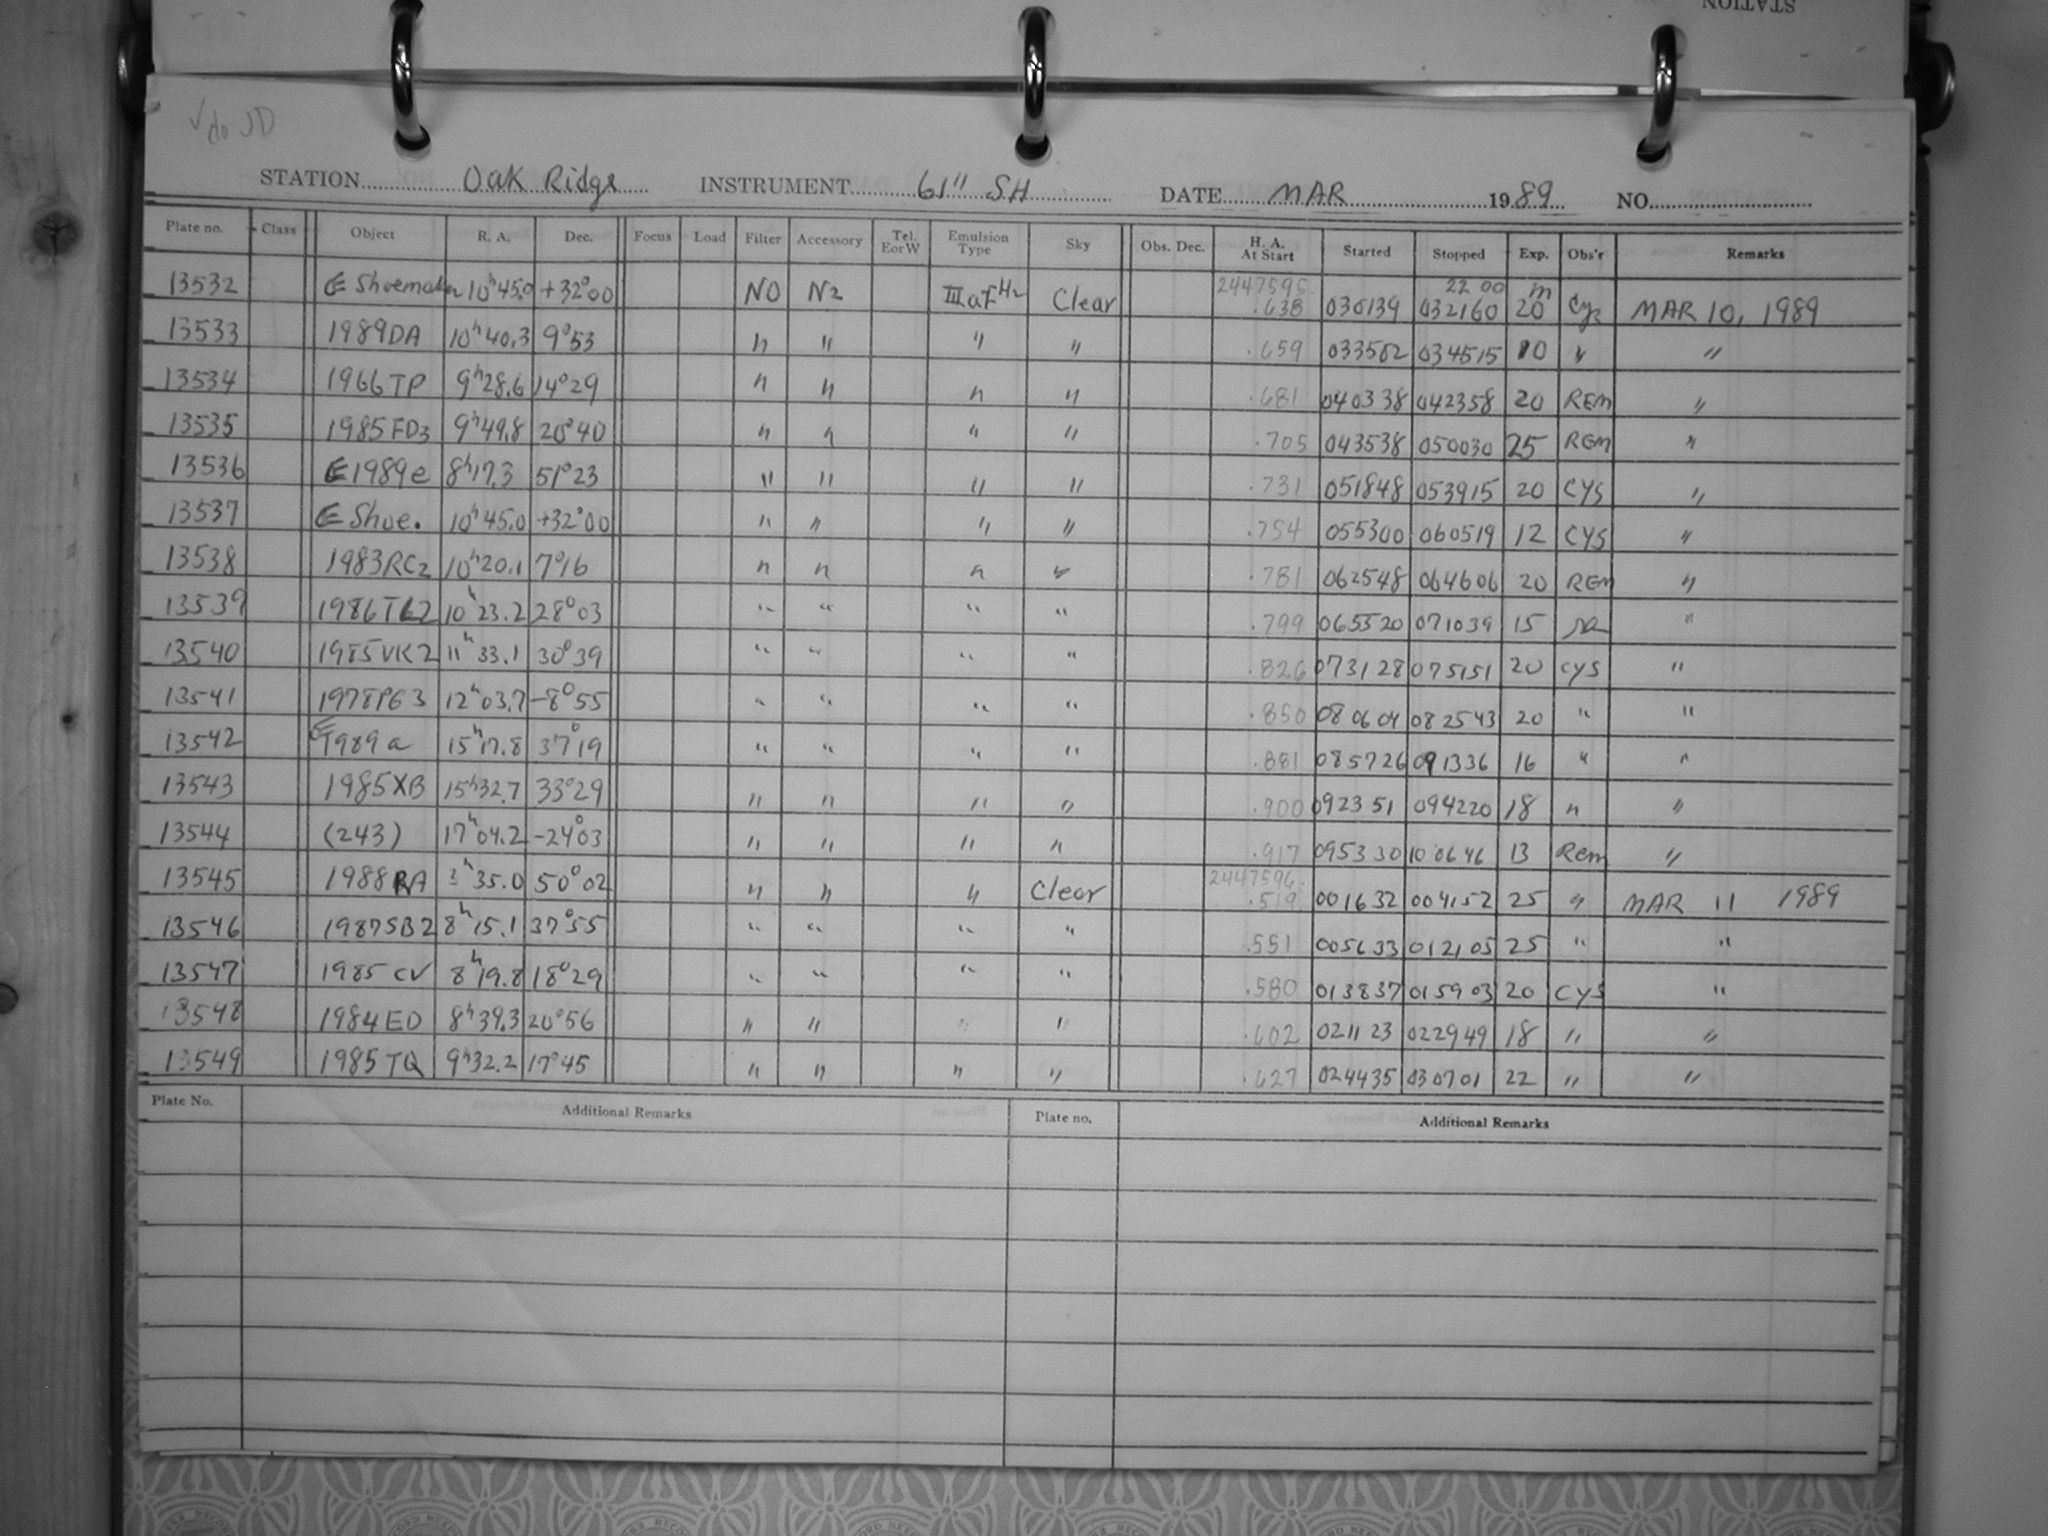 STATION
√ do JD
STATION Oak Ridge INSTRUMENT 61" SH DATE MAR 1989 NO.
Plate no. Class Object R. A. Dec. Focus Load Filter Accessory Tel. E or W Emulsion Type Sky Obs. Dec. H. A. At Start Started Stopped Exp. Obs'r Remarks
13532 Shoemaker 10h45.0 +32°00 NO N2 IIIaF H2 Clear 2447595 .638 030139 032160 22 00 20 m Cys MAR 10, 1989
13533 1989DA 10h40.3 9°53 " " " " .659 033502 034515 10 " "
13534 1966TP 9h28.6 14°29 " " " " .681 040338 042358 20 REM "
13535 1985FD3 9h49.8 20°40 " " " " .705 043538 050030 25 REM "
13536 1989e 8h17.3 51°23 " " " " .731 051848 053915 20 CYS "
13537 Shoe. 10h45.0 +32°00 " " " " .754 055300 060519 12 CYS "
13538 1983RC2 10h20.1 7°16 " " " " .781 062548 064606 20 REM "
13539 1986TL2 10h23.2 28°03 " " " " .799 065520 071039 15 "
13540 1985VK2 11h33.1 30°39 " " " " .826 073128 075151 20 CYS "
13541 1978PG3 12h03.7 -8°55 " " " " .850 080604 082543 20 " "
13542 1989a 15h17.8 37°19 " " " " .881 085726 091336 16 " "
13543 1985XB 15h32.7 33°29 " " " " .900 092351 094220 18 " "
13544 (243) 17h04.2 -24°03 " " " " .917 095330 100646 13 Rem "
13545 1988RA 3h35.0 50°02 " " " Clear 2447596. .519 001632 004152 25 " MAR 11 1989
13546 1987SB2 8h15.1 37°55 " " " " .551 005633 012105 25 " "
13547 1985 CV 8h19.8 18°29 " " " " .580 013837 015903 20 CYS "
13548 1984ED 8h39.3 20°56 " " " " .602 021123 022949 18 " "
13549 1985TQ 9h32.2 17°45 " " " " .627 024435 030701 22 " "
Plate No. Additional Remarks Plate no. Additional Remarks